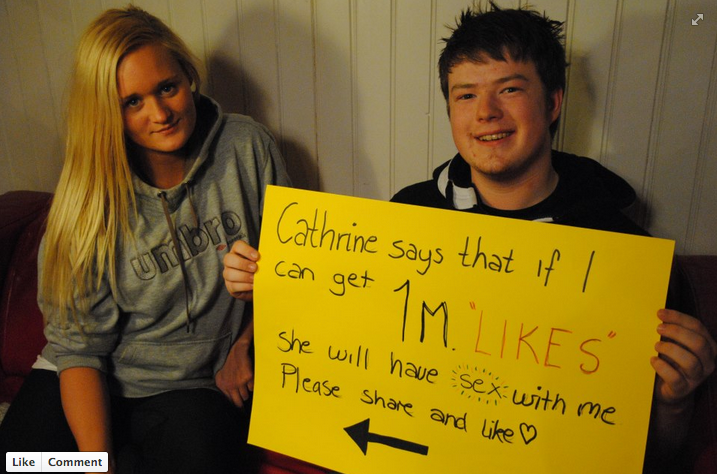 umbro
Cathrine says that if I
can get 1M. "LIKES"
She will have sex with me
Please share and like♡
Like Comment